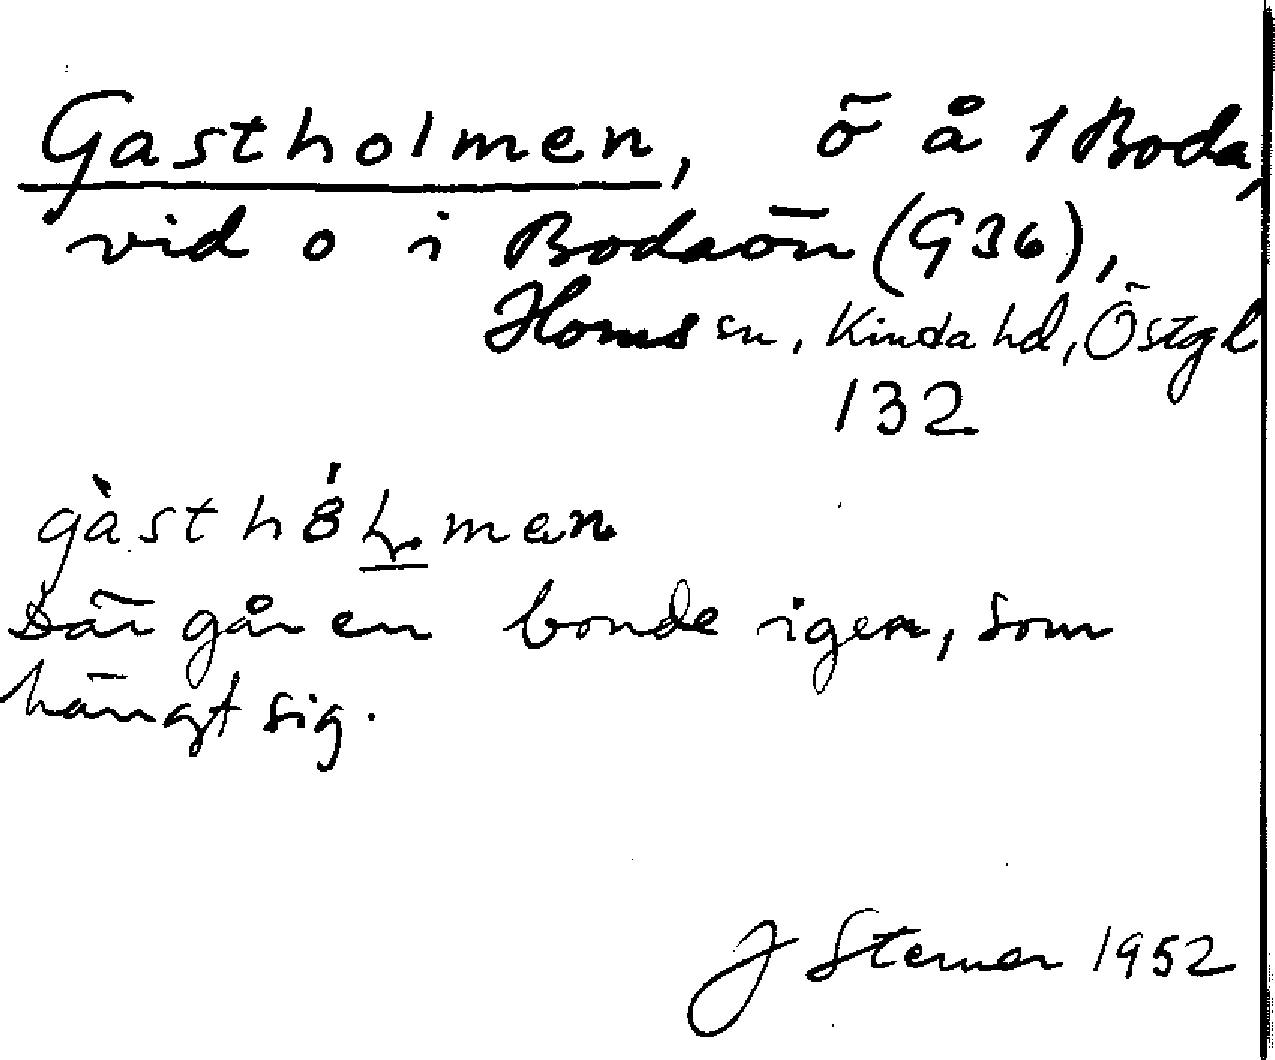 Gastholmen, ö å 1 Boda,
vid o i Bodaön (G36),
Horns sn, Kinda hd, Östgl
132
gàsthȣ́ɫmen
Där går en bonde igen, som
hängt sig.
J Sterner 1952